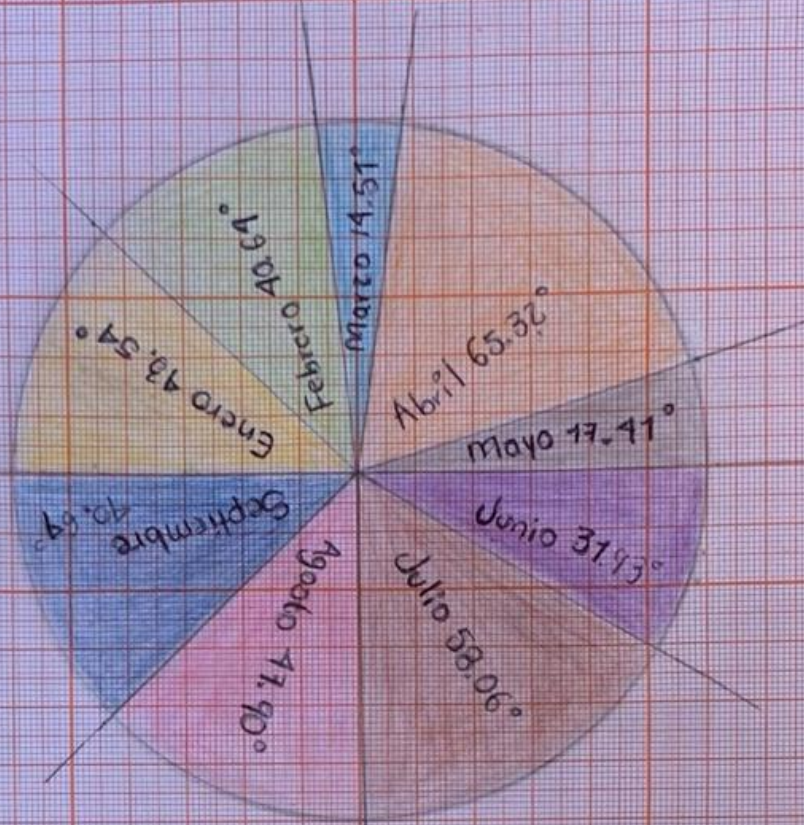 Enero 43.54°
Febrero 40.64°
Marzo 14.51°
Abril 65.32°
Mayo 17.41°
Junio 31.93°
Julio 58.06°
Agosto 47.90°
Septiembre
40.64°